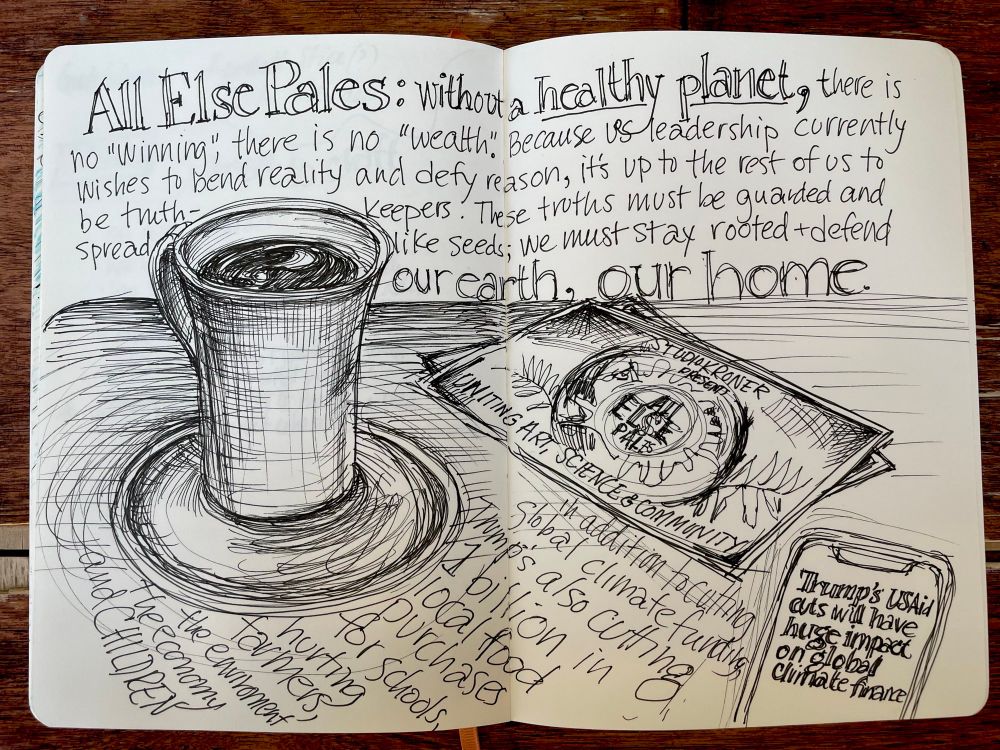 All Else Pales: without a healthy planet, there is
no "winning", there is no "wealth". Because US leadership currently
wishes to bend reality and defy reason, it's up to the rest of us to
be truth-keepers. These truths must be guarded and
spread like seeds; we must stay rooted + defend
our earth, our home.
STUDIOKRONER
PRESENTS
ALL
ELSE
PALES
UNITING ART, SCIENCE & COMMUNITY
in addition to cutting
Global climate funding,
Trump's also cutting
1 billion in
local food
purchases
for schools,
hurting
farmers,
the environment
the economy
and CHILDREN
Trump's USAid
cuts will have
huge impact
on global
climate finance